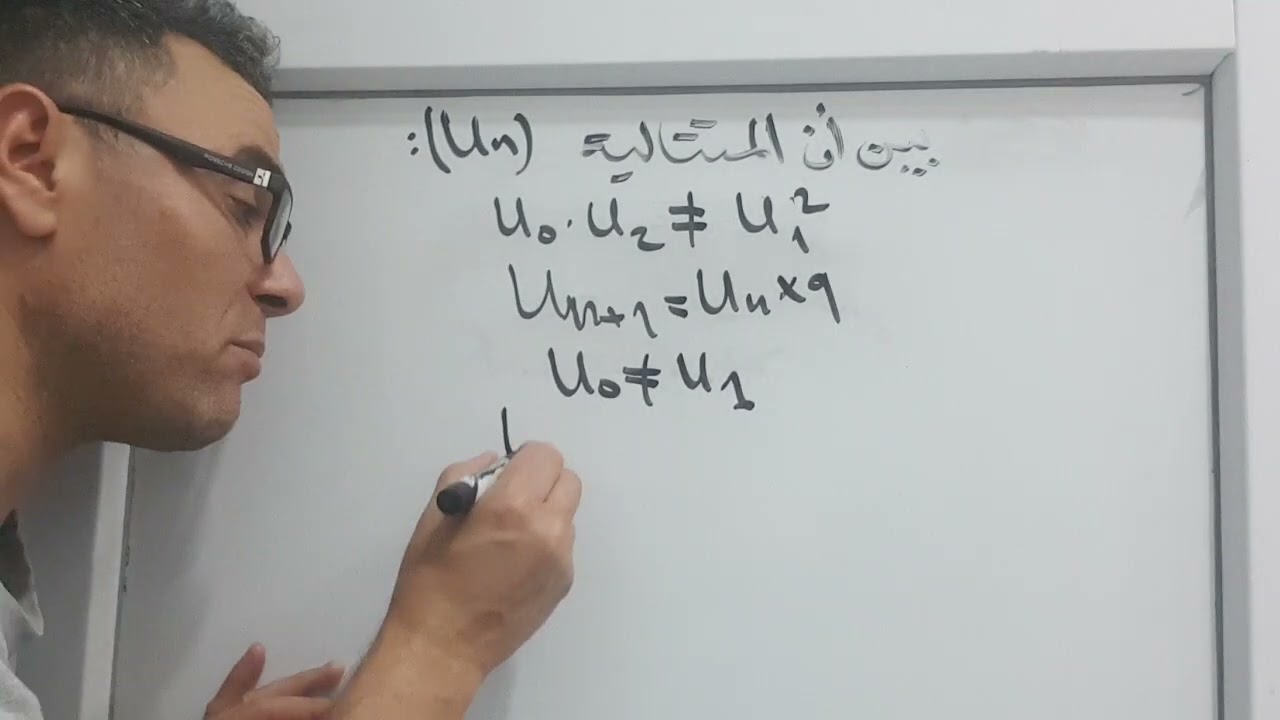 بين أن المتتالية (Un):
U₀·U₂ ≠ U₁²
Uₙ₊₁ = Uₙ × q
U₀ ≠ U₁